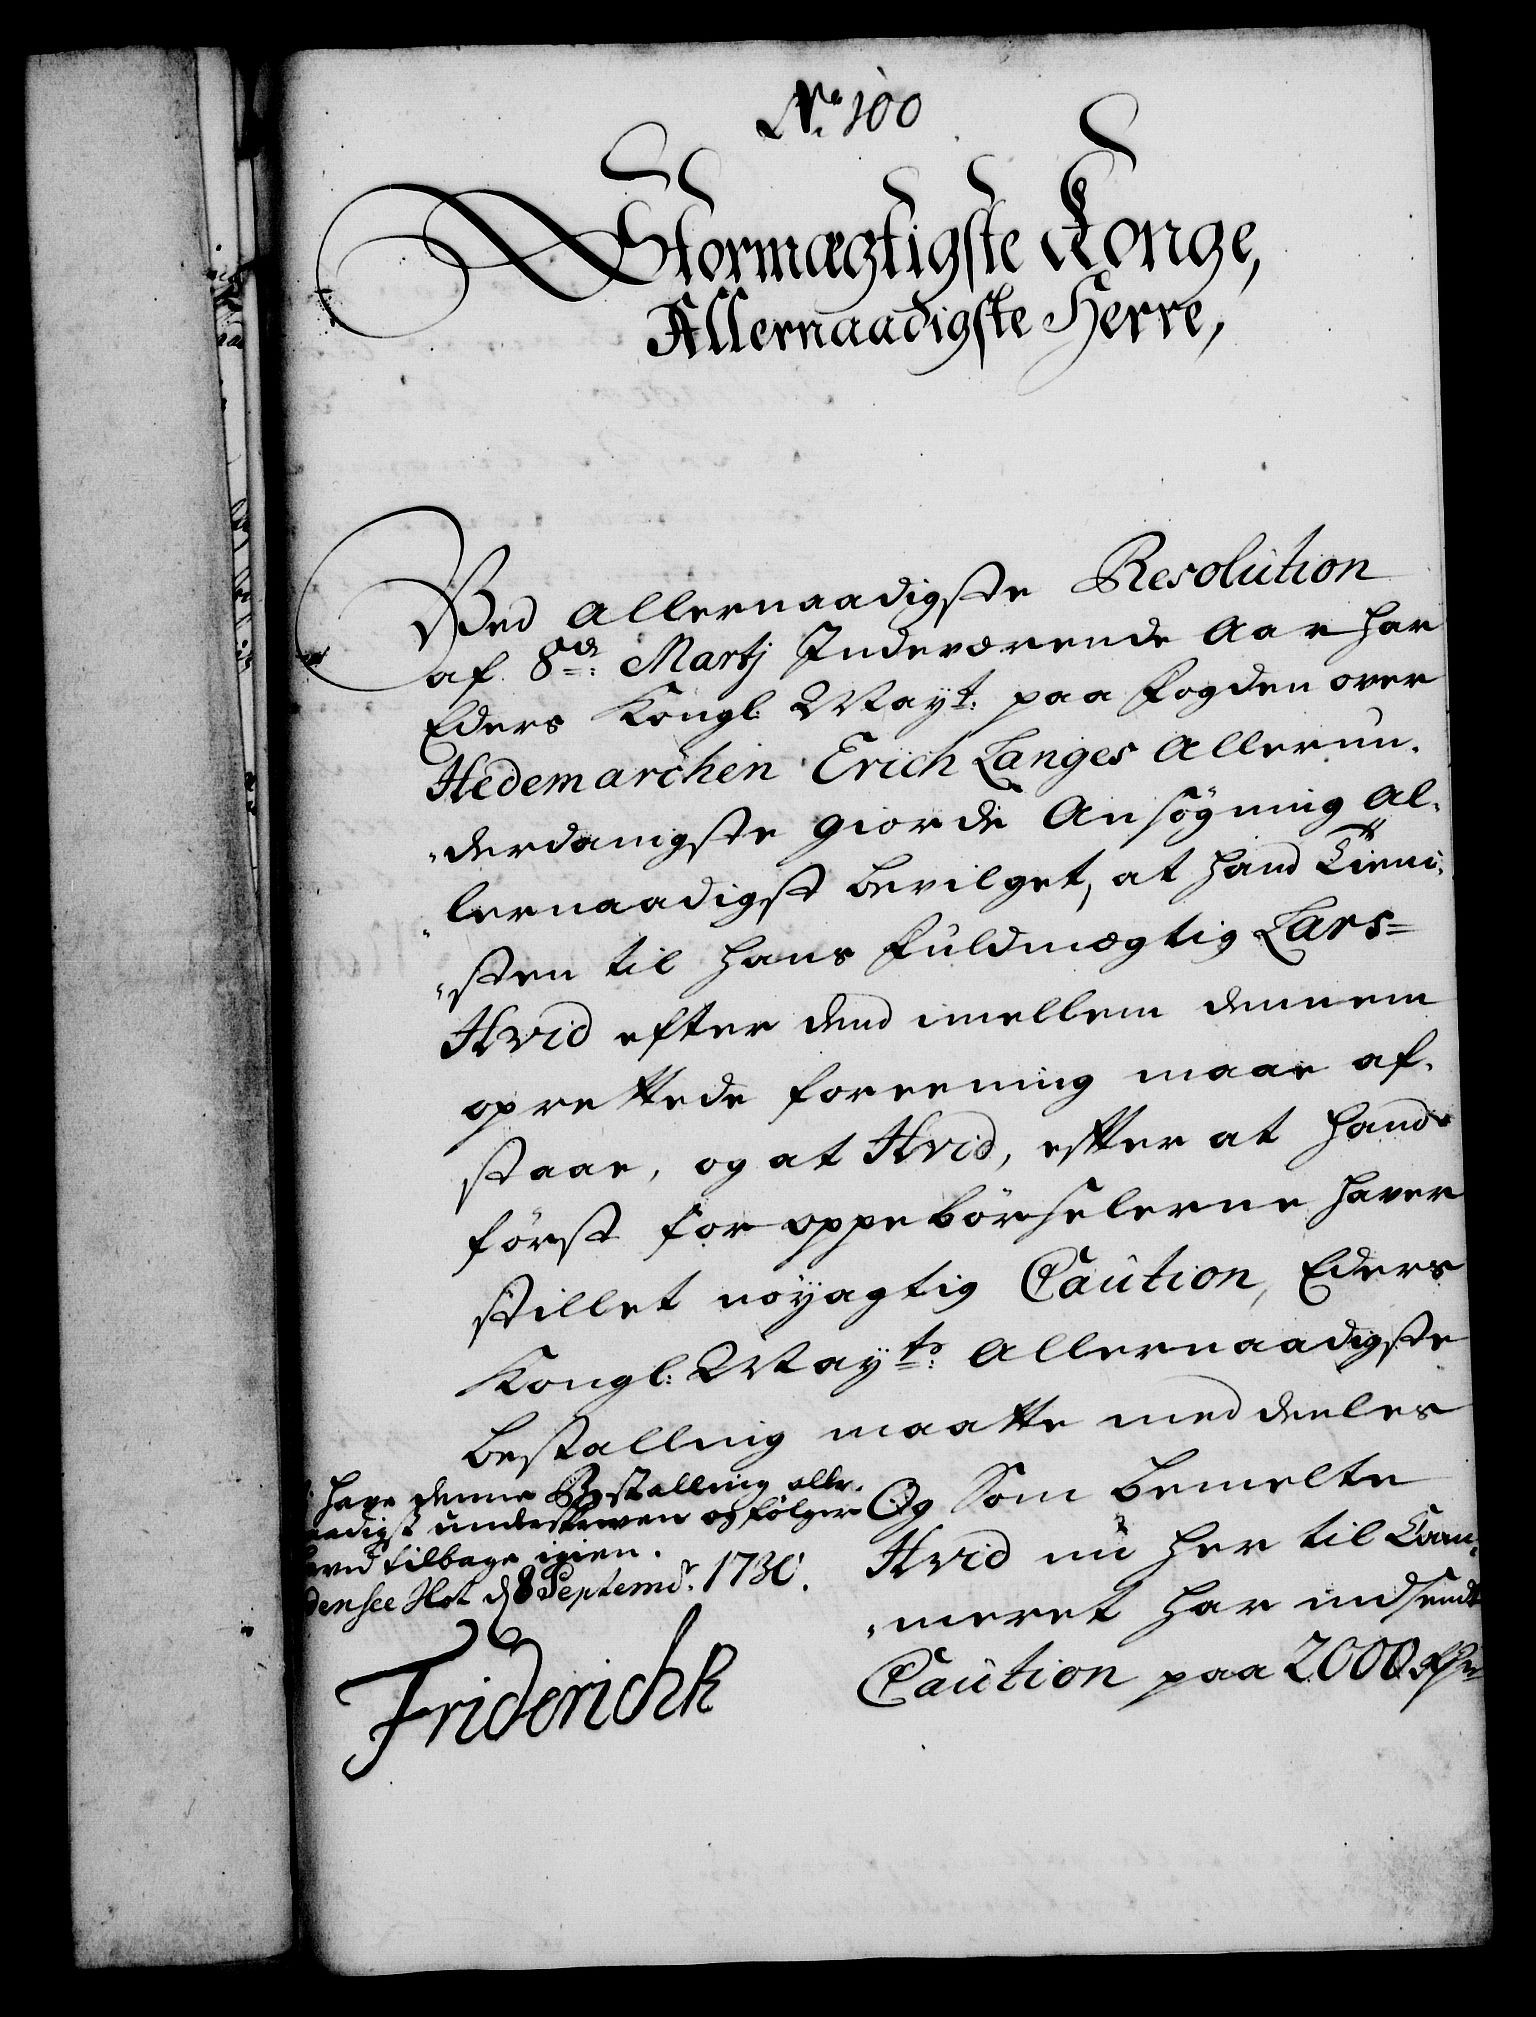 No. 100
Stormægtigste Konge,
Allernaadigste Herre,
Ved allernaadigste Resolution
af 8de: Martj Indeværende Aar har
Eders Kongl: Mayt: paa Fogden over
Hedemarchen Erich Langes allerun-
derdanigste giorde Ansøgning al-
lernaadigst bevilget, at hand Tieni-
sten til hans Fuldmægtig Lars=
Hvid efter dend imellem dennem
oprettede foreening maae af-
staae, og at Hvid, efter at hand
først for oppebörselerne haver
stillet nöyagtig Caution, Eders
Kongl: Mayts: allernaadigste
bestalling maatte meddeeles
Og som bemelte
Hvid nu her til Cam-
meret har indsendt
Caution paa 2000
have denne Bestalling aller-
naadigst underskreven og følger
tilbage igien.
densee Slot d 8 Septemdr: 1730.
Friderich R